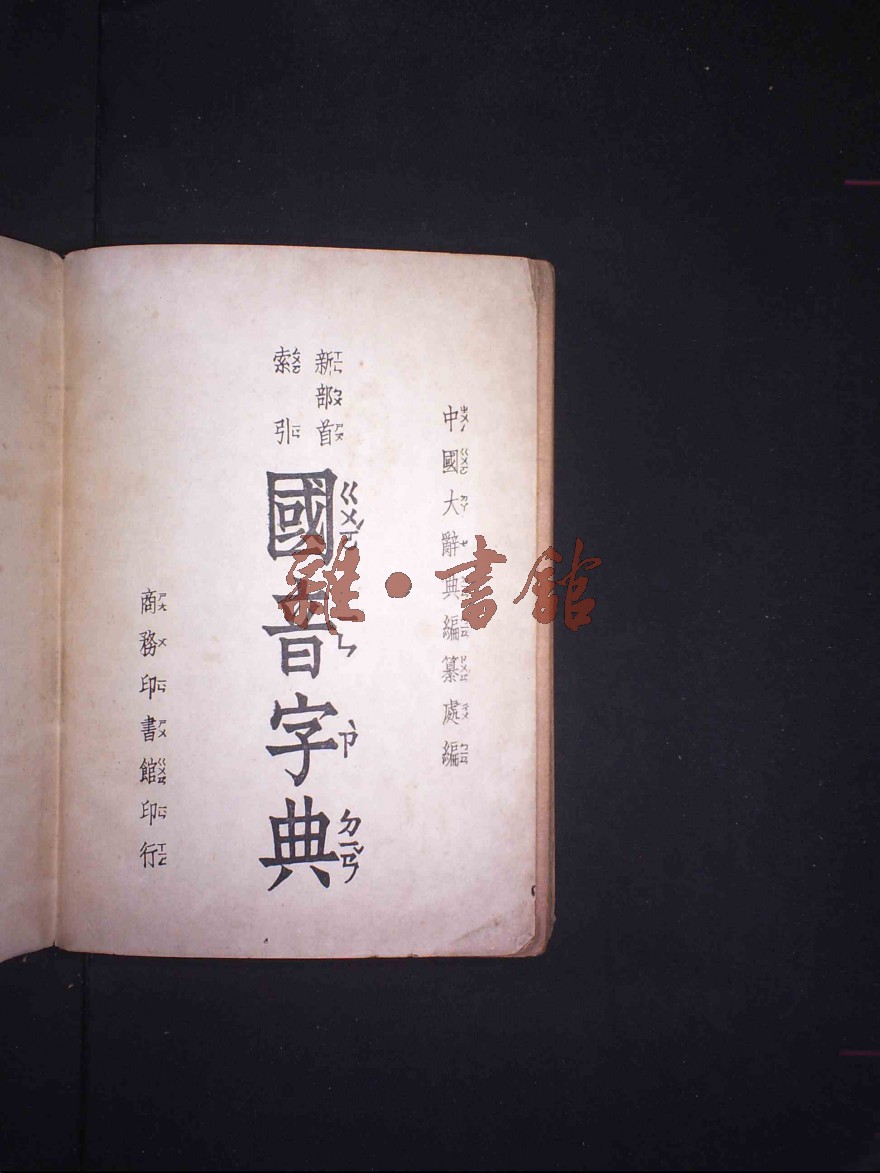 中國大辭典編纂處編
新部首
索引
國音字典
商務印書館印行
雜·書館